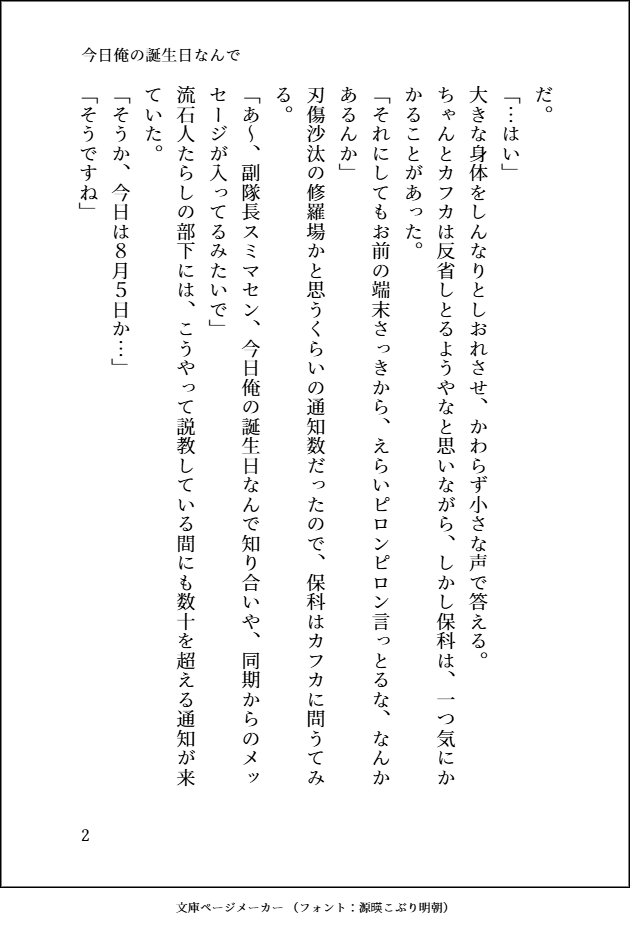 今日俺の誕生日なんで
だ。
「…はい」
大きな身体をしんなりとしおれさせ、かわらず小さな声で答える。
ちゃんとカフカは反省しとるようやなと思いながら、しかし保科は、一つ気にか
かることがあった。
「それにしてもお前の端末さっきから、えらいピロンピロン言っとるな、なんか
あるんか」
刃傷沙汰の修羅場かと思うくらいの通知数だったので、保科はカフカに問うてみ
る。
「あ～、副隊長スミマセン、今日俺の誕生日なんで知り合いや、同期からのメッ
セージが入ってるみたいで」
流石人たらしの部下には、こうやって説教している間にも数十を超える通知が来
ていた。
「そうか、今日は８月５日か…」
「そうですね」
2
文庫ページメーカー（フォント：源暎こぶり明朝）